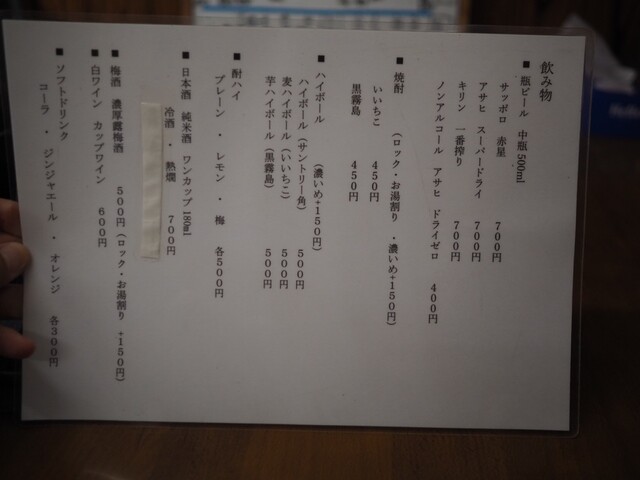 飲み物
■ 瓶ビール 中瓶 500ml
サッポロ 赤星 700円
アサヒ スーパードライ 700円
キリン 一番搾り 700円
ノンアルコール アサヒ ドライゼロ 400円
■ 焼酎 (ロック・お湯割り ・濃いめ+150円)
いいちこ 450円
黒霧島 450円
■ ハイボール (濃いめ+150円)
ハイボール (サントリー角) 500円
麦ハイボール (いいちこ) 500円
芋ハイボール (黒霧島) 500円
■ 酎ハイ
プレーン ・ レモン ・ 梅 各500円
■ 日本酒 純米酒 ワンカップ 180ml
冷酒 ・ 熱燗 700円
■ 梅酒 濃厚露梅酒 500円 (ロック・お湯割り +150円)
■ 白ワイン カップワイン 600円
■ ソフトドリンク
コーラ ・ ジンジャエール ・ オレンジ 各300円